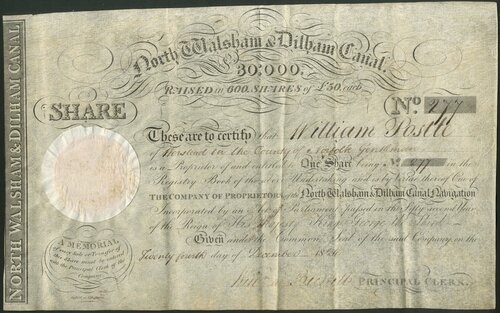 NORTH WALSHAM & DILHAM CANAL
North Walsham & Dilham Canal.
30,000,
RAISED in 600 SHARES of £50, each
SHARE
No 277
These are to certify that William Postle
of in the County of Norfolk Gentleman
is a Proprietor of and entitled to One Share being No 277 in the
Registry Book of the above Undertaking and is by virtue thereof One of
THE COMPANY OF PROPRIETORS of the North Walsham & Dilham Canal Navigation
Incorporated by an Act of Parliament passed in the Fifty second Year
of the Reign of His Majesty King George the Third
Given under the Common Seal of the said Company on the
Twenty fourth day of December 1826
PRINCIPAL CLERK.
A MEMORIAL
of every Sale or Transfer of
this Share must be entered
with the Principal Clerk of the
Company